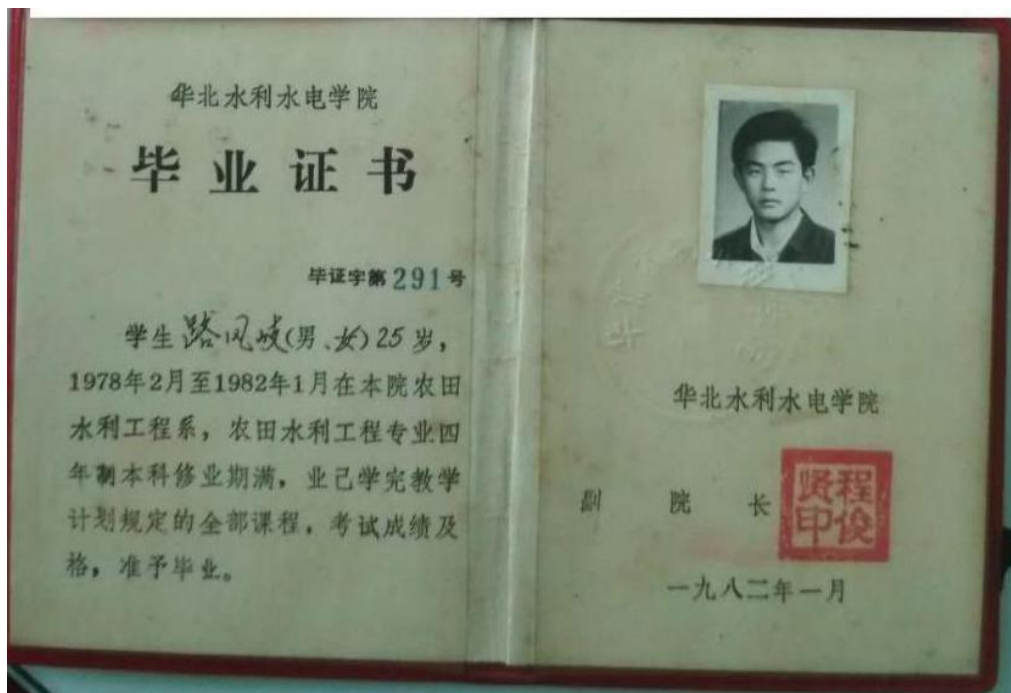 华北水利水电学院
毕业证书
毕证字第291号
学生路凤岐(男、女)25岁，
1978年2月至1982年1月在本院农田
水利工程系，农田水利工程专业四
年制本科修业期满，业已学完教学
计划规定的全部课程，考试成绩及
格，准予毕业。
华北水利水电学院
副 院 长
程俊
贤印
一九八二年一月